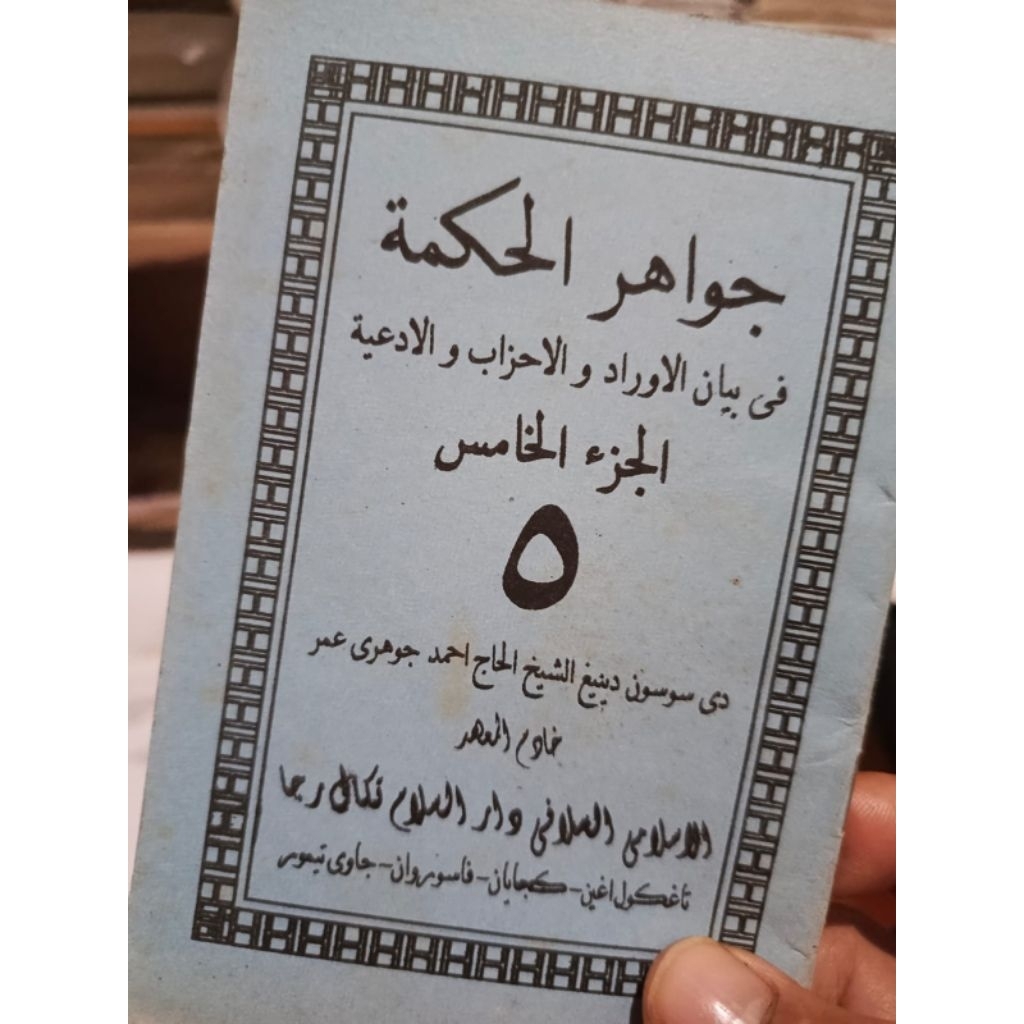 جواهر الحكمة
فى بيان الاوراد و الاحزاب و الادعية
الجزء الخامس
٥
دى سوسون دينيغ الشيخ الحاج احمد جوهرى عمر
خادم المعهد
الاسلامى السلافى دار السلام تكال رجا
تاغكول اغين - كجايان - فاسوروان - جاوى تيمور